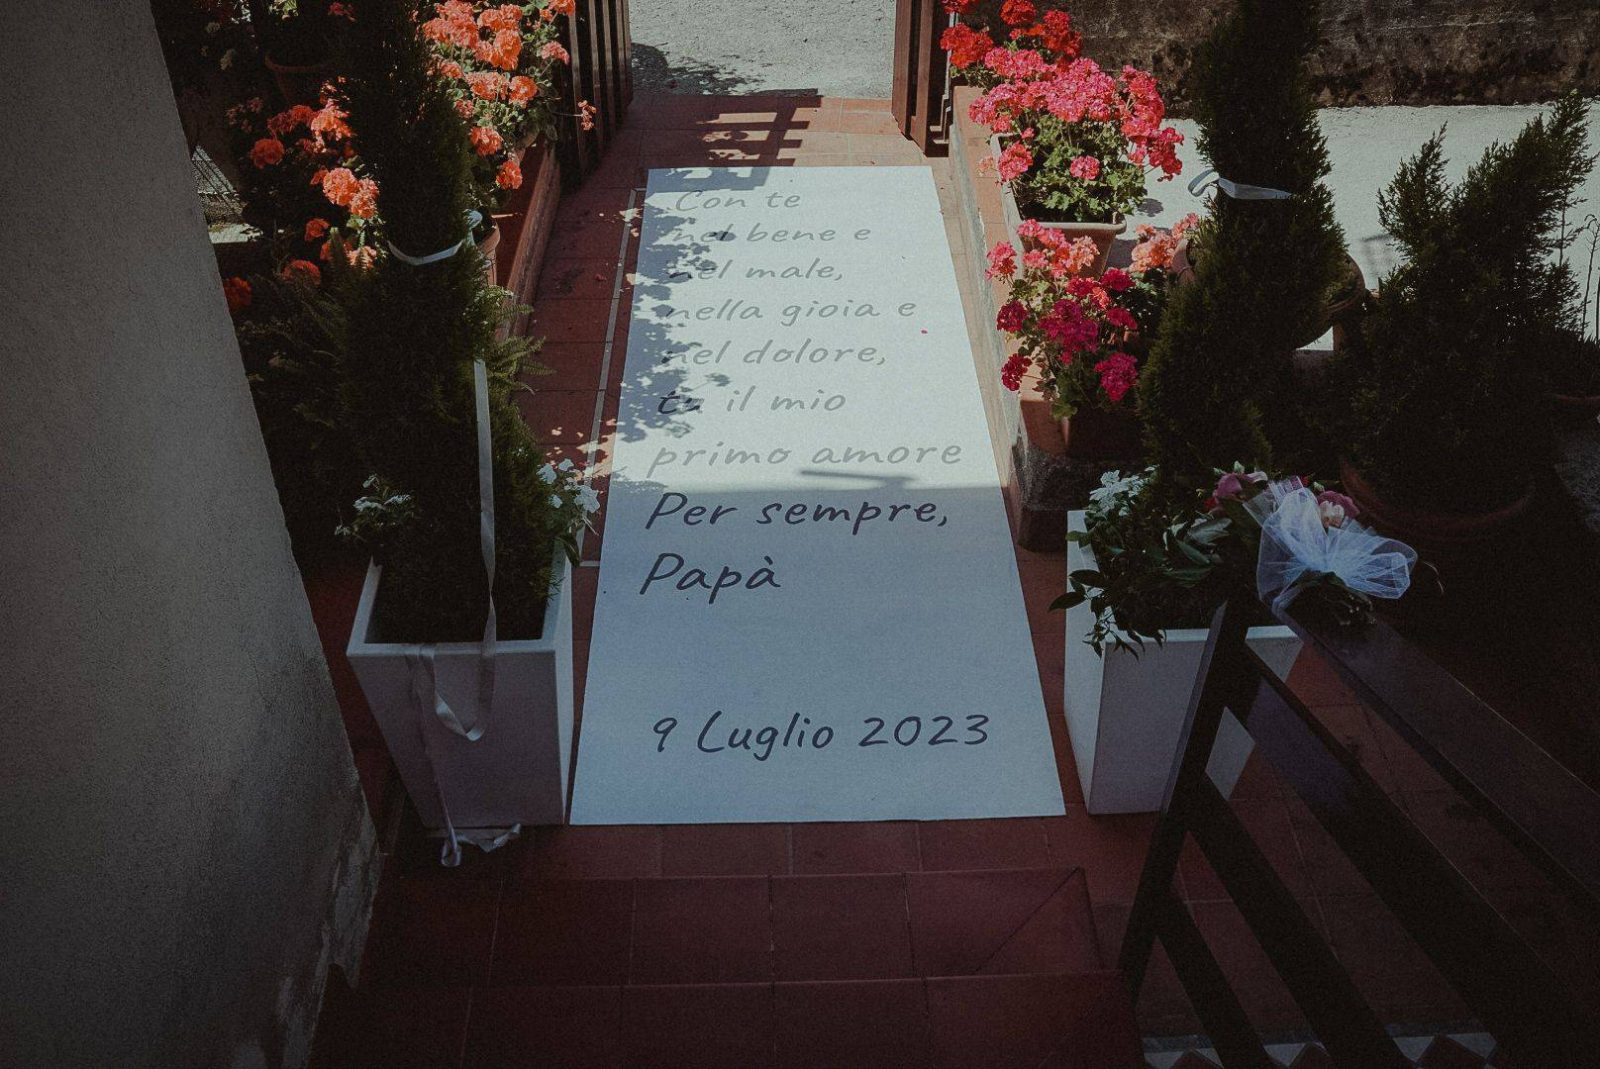 Con te
nel bene e
nel male,
nella gioia e
nel dolore,
tu il mio
primo amore
Per sempre,
Papà
9 Luglio 2023